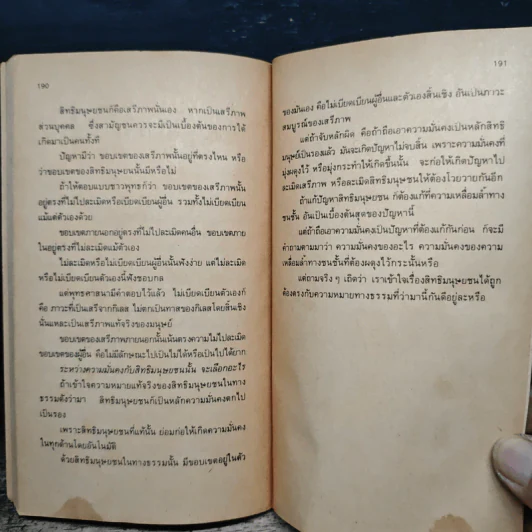 190
สิทธิมนุษยชนก็คือเสรีภาพนั่นเอง หากเป็นเสรีภาพ
ส่วนบุคคล ซึ่งสามัญชนควรจะมีเป็นเบื้องต้นของการได้
เกิดมาเป็นคนทั้งที
ปัญหามีว่า ขอบเขตของเสรีภาพนั้นอยู่ที่ตรงไหน หรือ
ว่าขอบเขตของสิทธิมนุษยชนนั้นมีหรือไม่
ถ้าให้ตอบแบบชาวพุทธก็ว่า ขอบเขตของเสรีภาพนั้น
อยู่ตรงที่ไม่ละเมิดหรือเบียดเบียนผู้อื่น รวมทั้งไม่เบียดเบียน
แม้แต่ตัวเองด้วย
ขอบเขตภายนอกอยู่ตรงที่ไม่ไปละเมิดคนอื่น ขอบเขตภาย
ในอยู่ตรงที่ไม่ละเมิดแม้ตัวเอง
ไม่ละเมิดหรือไม่เบียดเบียนผู้อื่นนั้นฟังง่าย แต่ไม่ละเมิด
หรือไม่เบียดเบียนตัวเองนี้ฟังชอบกล
แต่พุทธศาสนามีคำตอบไว้แล้ว ไม่เบียดเบียนตัวเองก็
คือ ภาวะที่เป็นเสรีจากกิเลส ไม่ตกเป็นทาสของกิเลสโดยสิ้นเชิง
นั่นแหละเป็นเสรีภาพแท้จริงของมนุษย์
ขอบเขตของเสรีภาพภายนอกนั้นเน้นตรงความไม่ไปละเมิด
ขอบเขตของผู้อื่น คือไม่มีลักษณะไปเป็นไม่ได้หรือเป็นไปได้ยาก
ระหว่างความมั่นคงกับสิทธิมนุษยชนนั้น จะเลือกอะไร
ถ้าเข้าใจความหมายแท้จริงของสิทธิมนุษยชนในทาง
ธรรมดังว่ามา สิทธิมนุษยชนก็เป็นหลักความมั่นคงตกไป
เป็นรอง
เพราะสิทธิมนุษยชนที่แท้นั้น ย่อมก่อให้เกิดความมั่นคง
ในทุกด้านโดยอัตโนมัติ
ด้วยสิทธิมนุษยชนในทางธรรมนั้น มีขอบเขตอยู่ในตัว
191
ของมันเอง คือไม่เบียดเบียนผู้อื่นและตัวเองสิ้นเชิง อันเป็นภาวะ
สมบูรณ์ของเสรีภาพ
แต่ถ้าจับหลักผิด คือถ้าถือเอาความมั่นคงเป็นหลักสิทธิ
มนุษย์เป็นรองแล้ว มันจะเกิดปัญหาไม่จบสิ้น เพราะความมั่นคงที่
มุ่งผดุงไว้ หรือมุ่งกระทำให้เกิดขึ้นนั้น จะก่อให้เกิดปัญหาไป
ละเมิดเสรีภาพ หรือละเมิดสิทธิมนุษชนให้ต้องโวยวายกันอีก
ถ้าแก้ปัญหาสิทธิมนุษยชน ก็ต้องแก้ที่ความเหลื่อมล้ำทาง
ชนชั้น อันเป็นเบื้องต้นสุดของปัญหานี้
แต่ถ้าถือเอาความมั่นคงเป็นปัญหาที่ต้องแก้กันก่อน ก็จะมี
คำถามตามมาว่า ความมั่นคงของอะไร ความมั่นคงของความ
เหลื่อมล้ำทางชนชั้นที่ต้องผดุงไว้กระนั้นหรือ
แต่ถามจริง ๆ เถิดว่า เราเข้าใจเรื่องสิทธิมนุษยชนได้ถูก
ต้องตรงกับความหมายทางธรรมที่ว่ามานี้กันดีอยู่ละหรือ